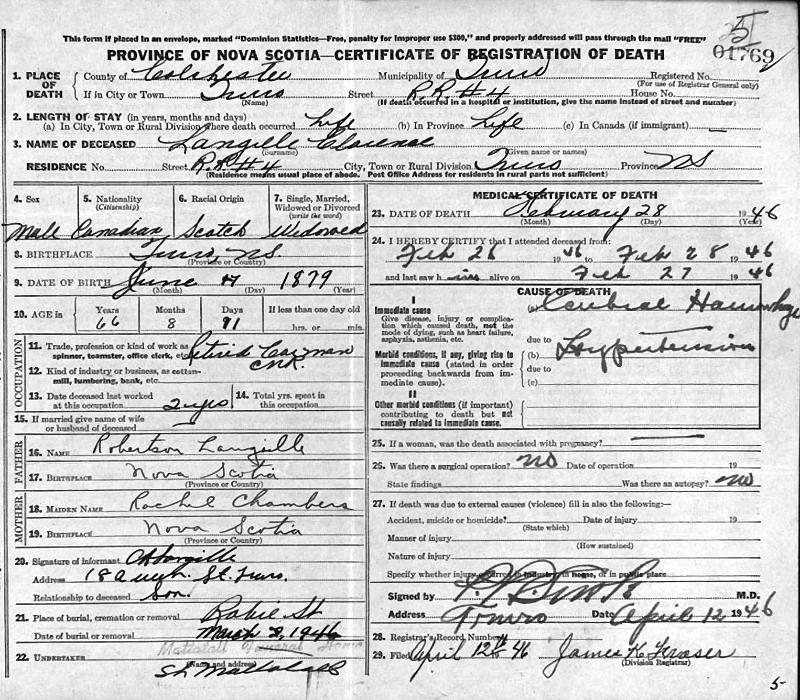 This form if placed in an envelope, marked "Dominion Statistics—Free, penalty for improper use $300," and properly addressed will pass through the mail "FREE"
5
01769
PROVINCE OF NOVA SCOTIA—CERTIFICATE OF REGISTRATION OF DEATH
1. PLACE OF DEATH
County of Colchester Municipality of Truro Registered No.
(For use of Registrar General only)
If in City or Town Truro Street R.R #4 House No.
(Name) (If death occurred in a hospital or institution, give the name instead of street and number)
2. LENGTH OF STAY (in years, months and days)
(a) In City, Town or Rural Division where death occurred Life (b) In Province Life (c) In Canada (if immigrant) —
3. NAME OF DECEASED Langille Clarence
(Surname) (Given name or names)
RESIDENCE No. Street R.R #4 City, Town or Rural Division Truro Province NS
(Residence means usual place of abode. Post Office Address for residents in rural parts not sufficient)
4. Sex 5. Nationality (Citizenship) 6. Racial Origin 7. Single, Married, Widowed or Divorced (write the word)
Male Canadian Scotch Widowed
8. BIRTHPLACE Truro, NS.
(Province or Country)
9. DATE OF BIRTH June 1879
(Month) (Day) (Year)
10. AGE in Years Months Days If less than one day old
66 8 hrs. or min.
OCCUPATION
11. Trade, profession or kind of work as spinner, teamster, office clerk, etc. Retired Carman
12. Kind of industry or business, as cotton-mill, lumbering, bank, etc. CNR.
13. Date deceased last worked at this occupation 2 yrs 14. Total yrs. spent in this occupation
15. If married give name of wife or husband of deceased —
FATHER
16. NAME Robertson Langille
17. BIRTHPLACE Nova Scotia
(Province or Country)
MOTHER
18. MAIDEN NAME Rachel Chambers
19. BIRTHPLACE Nova Scotia
(Province or Country)
20. Signature of informant Langille
Address 18 St. Truro.
Relationship to deceased Son.
21. Place of burial, cremation or removal Robie St
Date of burial or removal March 2, 1946
Mattatall Funeral Home
22. UNDERTAKER
(Name and address)
Mattatall
MEDICAL CERTIFICATE OF DEATH
23. DATE OF DEATH February 28 1946
(Month) (Day) (Year)
24. I HEREBY CERTIFY that I attended deceased from:
Feb 26 1946 to Feb 28 1946
and last saw him alive on Feb 27 1946
CAUSE OF DEATH
I
Immediate cause (a) Cerebral Haemorrhage
Give disease, injury or complication which caused death, not the mode of dying, such as heart failure, asphyxia, asthenia, etc.
due to
Morbid conditions, if any, giving rise to immediate cause (stated in order proceeding backwards from immediate cause).
(b) Hypertension
due to
(c)
II
Other morbid conditions (if important) contributing to death but not causally related to immediate cause.
25. If a woman, was the death associated with pregnancy? —
26. Was there a surgical operation? NO Date of operation 19
State findings Was there an autopsy? NO
27. If death was due to external causes (violence) fill in also the following:—
Accident, suicide or homicide? Date of injury 19
(State which)
Manner of injury
(How sustained)
Nature of injury
Specify whether injury occurred in industry, in home, or in public place
Signed by M.D.
Address Truro Date April 12 1946
28. Registrar's Record Number
29. Filed April 12th 46 James K Fraser
(Division Registrar)
5-